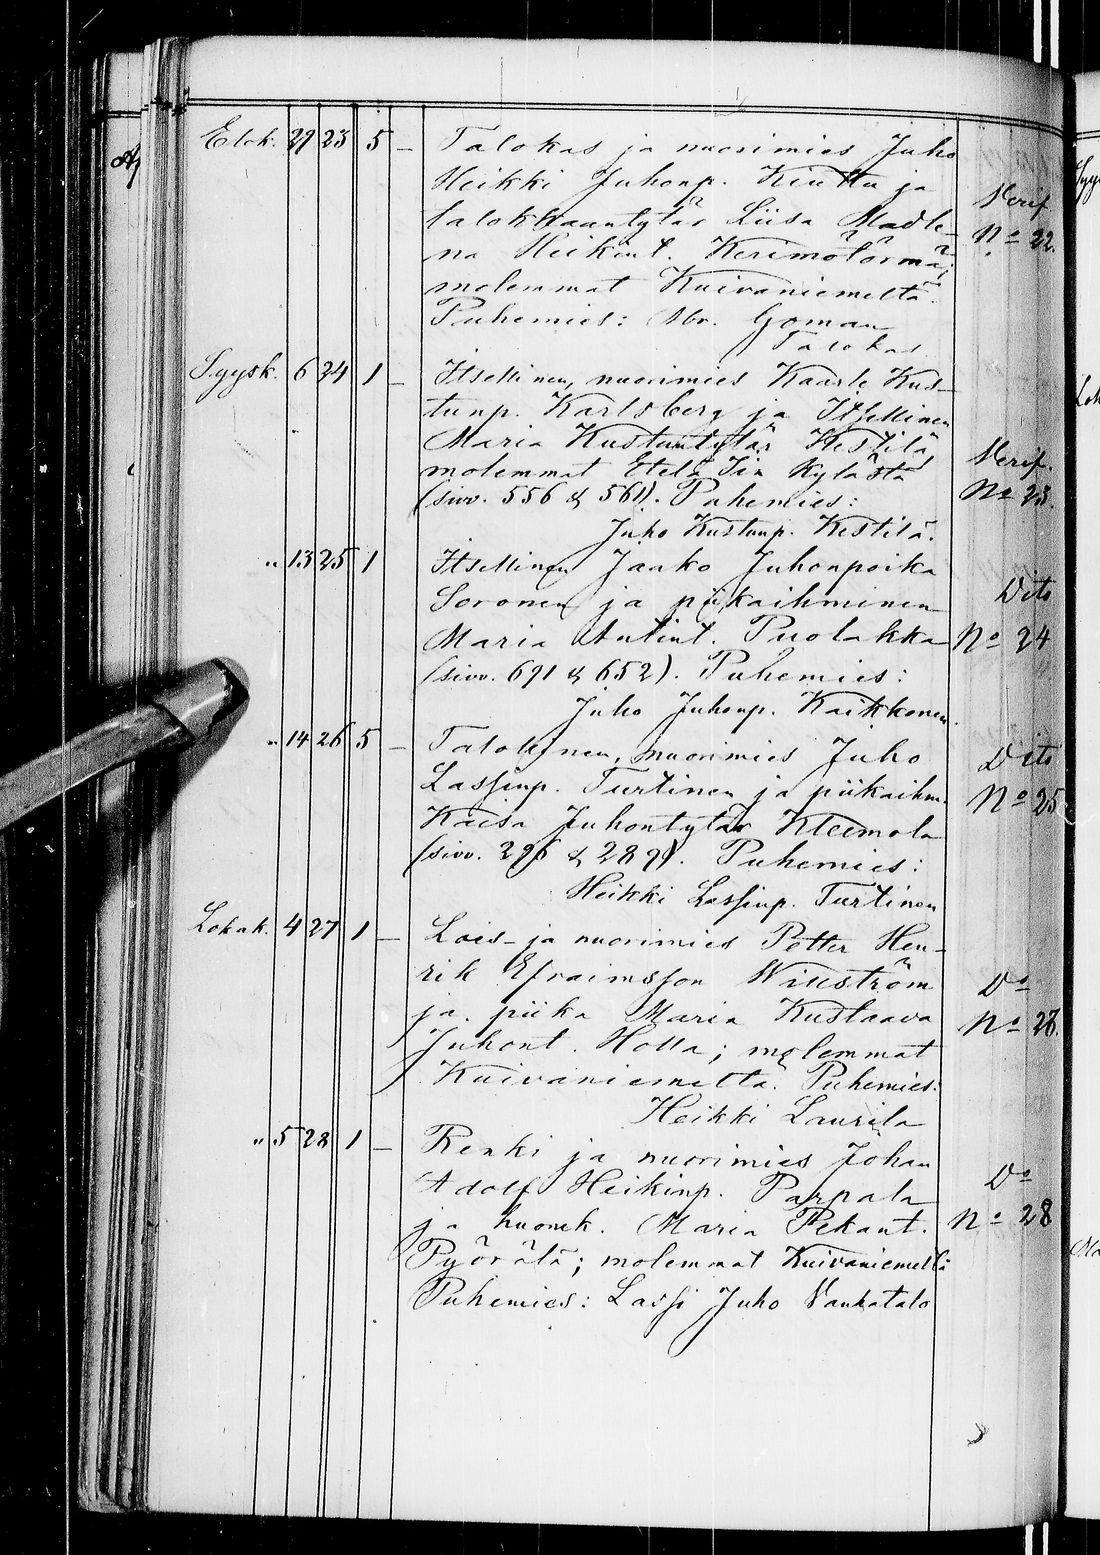 Elok. 29 23 5 — Talokas ja nuorimies Juho
Heikki Juhonp. Kiutta ja
talokkaantytär Liisa Madle- Verif.
na Heikint. Kerimötörmä; No 22.
molemmat Kuivaniemeltä.
Puhemies: Abr. Goman
Talokas
Syysk. 6 24 1 — Itsellinen, nuorimies Kaarle Kus-
tunp. Karlsberg ja Itsellinen
Maria Kustuntytär Kestilä, Verif.
molemmat Etelä Iin Kylästä No 23.
(sivv. 556 & 561). Puhemies:
Juho Kustunp. Kestilä.
" 13 25 1 Itsellinen Jaako Juhonpoika
Soronen ja piikaihminen Dito
Maria Antint. Puolakka No 24
(sivv. 691 & 652). Puhemies:
Juho Juhonp. Kaikkonen.
" 14 26 5 — Talollinen, nuorimies Juho Dito
Lassinp. Turtinen ja piikaihm. No 25
Kaisa Juhontytär Kleemola
(sivv. 296 & 289). Puhemies:
Heikki Lassinp. Turtinen
Lokak. 4 27 1 — Lois- ja nuorimies Petter Hen-
rik Efraimsson Wikström Do
ja piika Maria Kustaava No
Juhont. Holla; molemmat
Kuivaniemeltä. Puhemies:
Heikki Laurila
" 5 28 1 — Renki ja nuorimies Johan
Adolf Heikinp. Parpala Do
ja huonek. Maria Pekant. No 28
Pyörälä; molemmat Kuivaniemeltä
Puhemies: Lassi Juho Vankatalo